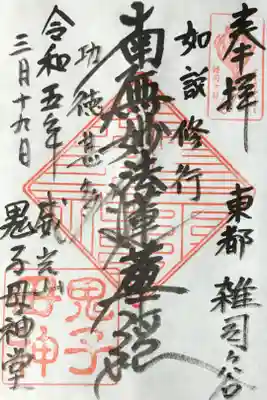 奉拝
東都 雑司ヶ谷
如説修行
南無妙法蓮華経
功徳甚多
威光山
鬼子母神堂
令和五年
三月十九日
鬼子
母神